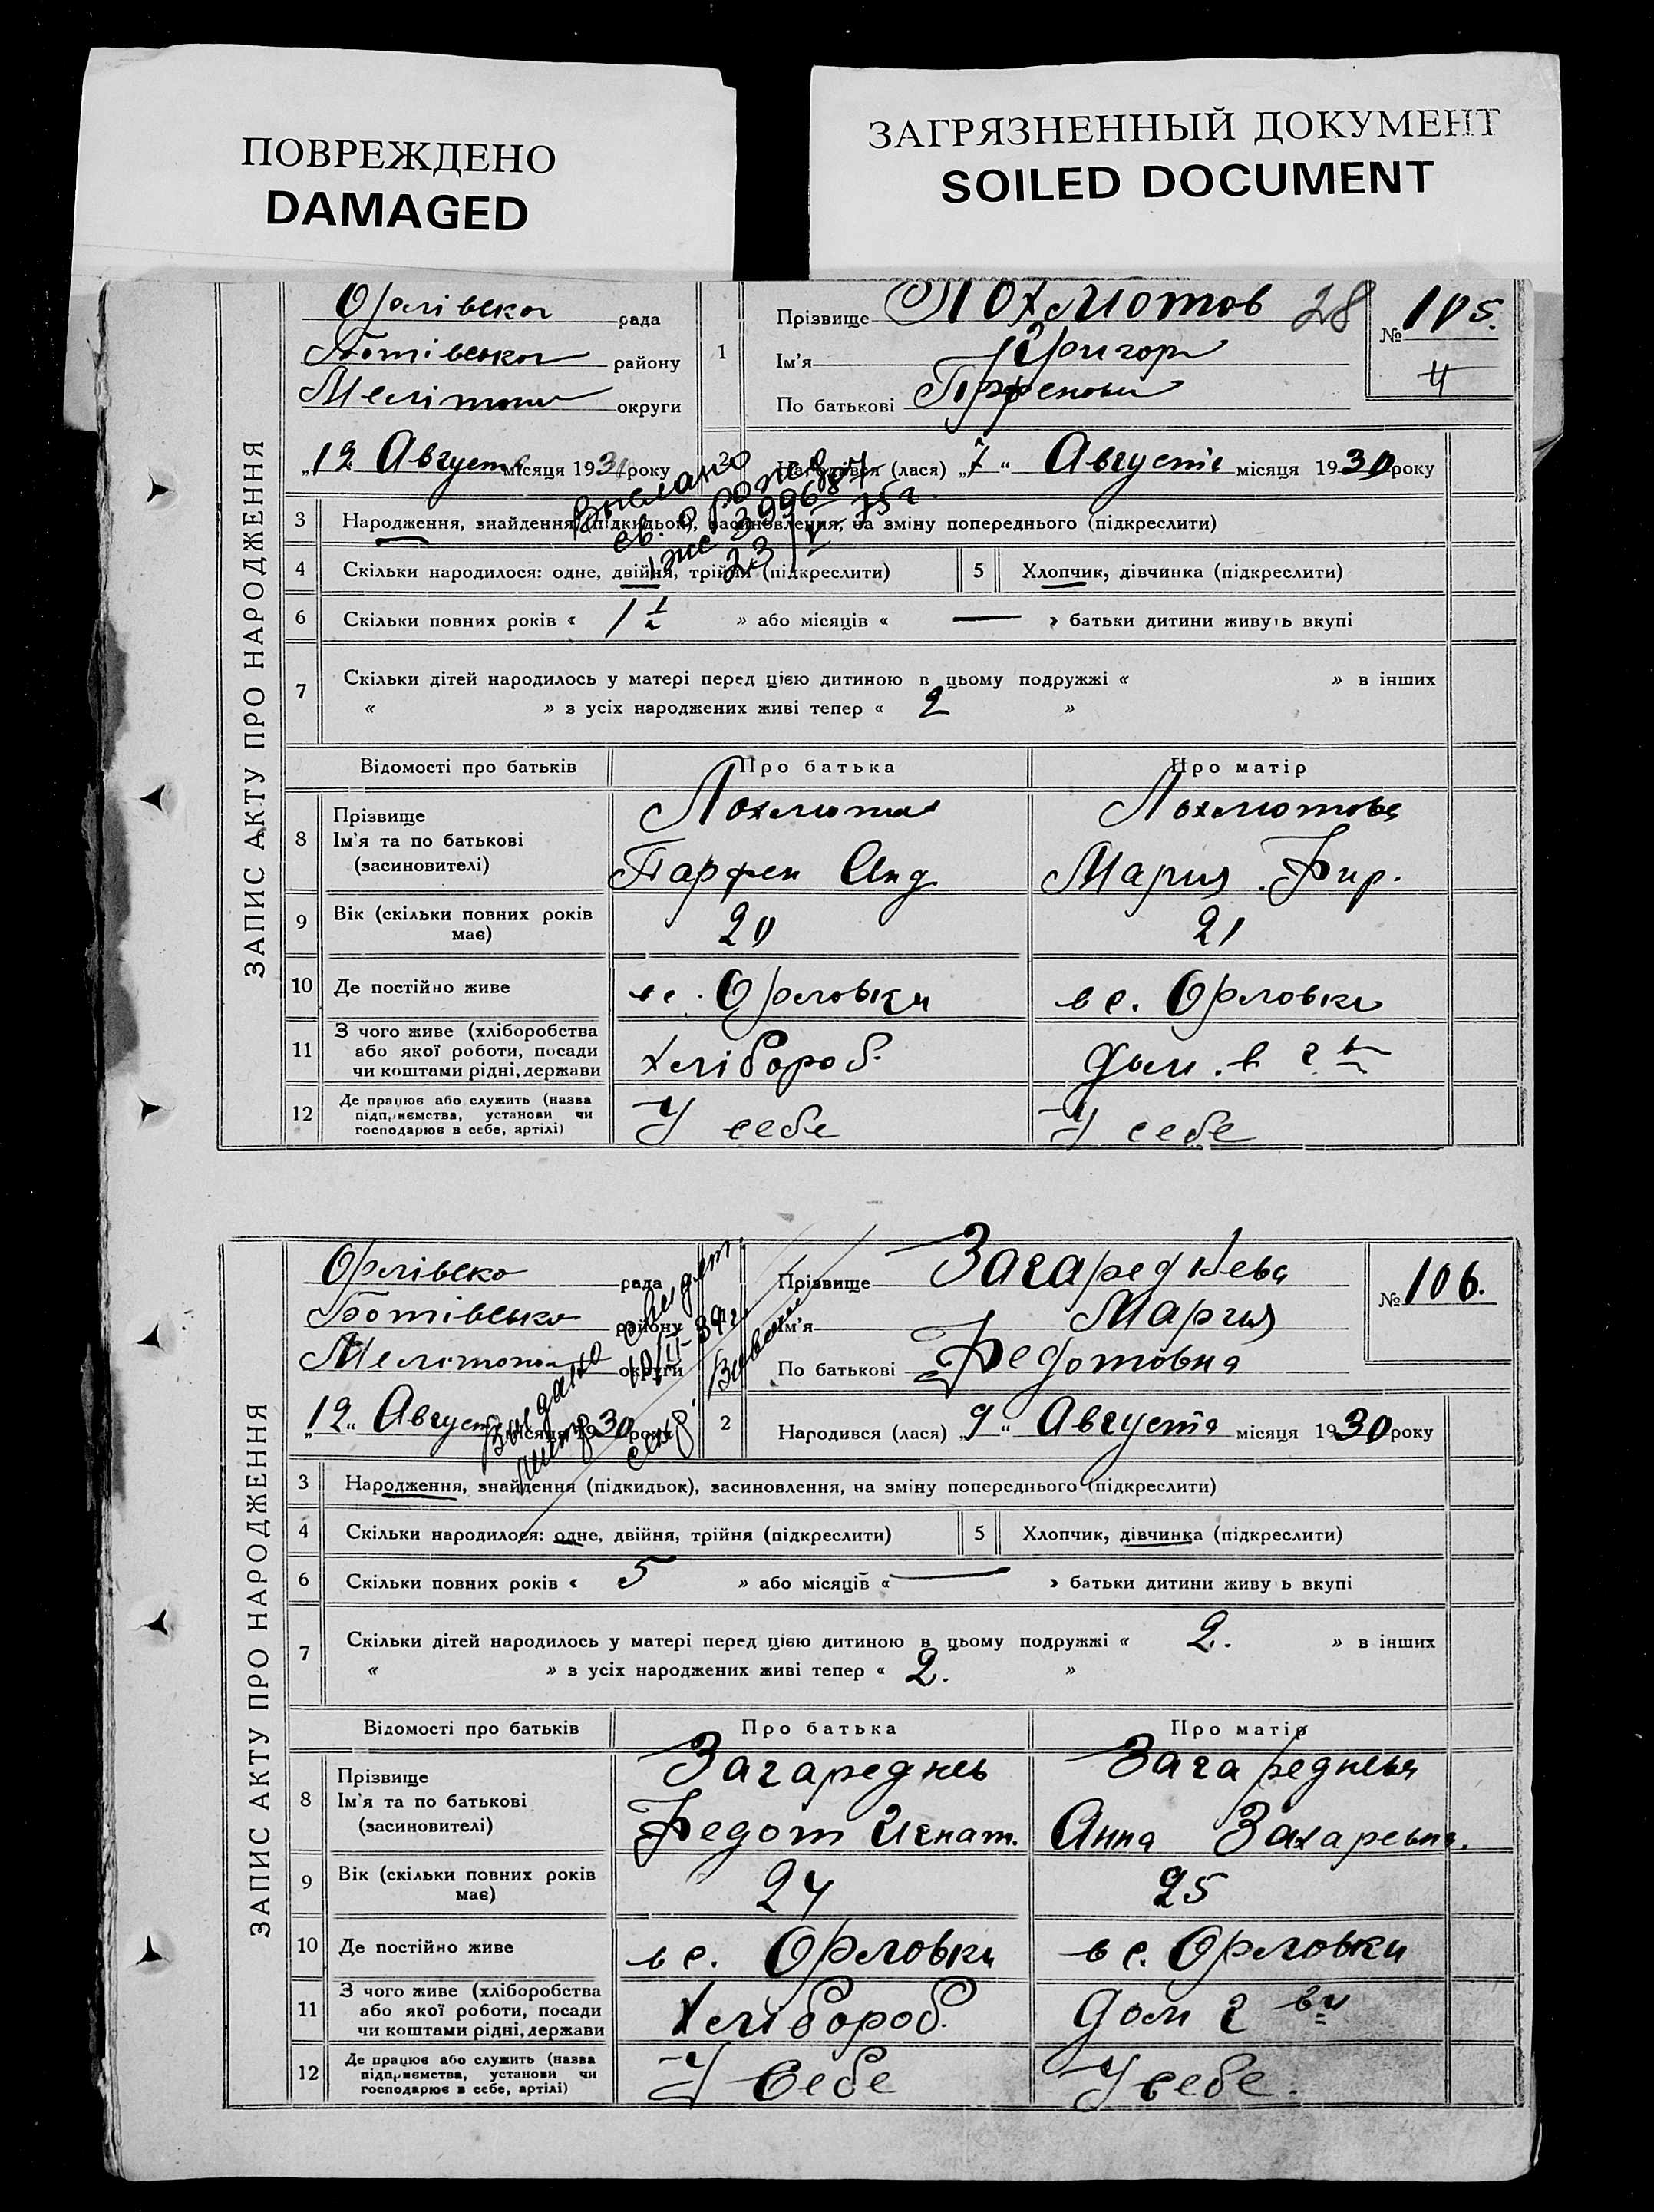 ПОВРЕЖДЕНО
DAMAGED
ЗАГРЯЗНЕННЫЙ ДОКУМЕНТ
SOILED DOCUMENT
ЗАПИС АКТУ ПРО НАРОДЖЕННЯ
рада
району
округи
12 Август місяця 193 року
1 Прізвище 28
Ім'я Григор
По батькові
№ 105.
4
Народився (лася) „7“ Августа місяця 1930 року
св. о рожд
23/V 75 г.
3 Народження, знайдення (підкидьок), засиновлення, на зміну попереднього (підкреслити)
4 Скільки народилося: одне, двійня, трійня (підкреслити)
5 Хлопчик, дівчинка (підкреслити)
6 Скільки повних років « 1 ½ » або місяців « — » батьки дитини живуть вкупі
7 Скільки дітей народилось у матері перед цією дитиною в цьому подружжі « » в інших
« » з усіх народжених живі тепер « 2 »
Відомості про батьків Про батька Про матір
8 Прізвище
Ім'я та по батькові Парфен Анд Мария Фир.
(засиновителі)
9 Вік (скільки повних років має) 20 21
10 Де постійно живе в с. Орловки в с. Орловки
11 З чого живе (хліборобства або якої роботи, посади чи коштами рідні, держави Хлібороб.
12 Де працює або служить (назва підприємства, установи чи господарює в себе, артілі) У себе У себе
ЗАПИС АКТУ ПРО НАРОДЖЕННЯ
Орлівсько рада
Ботівсько району
округи
„12“ Август місяця 1930 року
Прізвище Загареднева
Ім'я Мария
По батькові Федотовна
№ 106.
2 Народився (лася) „9“ Августа місяця 1930 року
Выдано
3 Народження, знайдення (підкидьок), засиновлення, на зміну попереднього (підкреслити)
4 Скільки народилося: одне, двійня, трійня (підкреслити)
5 Хлопчик, дівчинка (підкреслити)
6 Скільки повних років « 5 » або місяців « — » батьки дитини живу ь вкупі
7 Скільки дітей народилось у матері перед цією дитиною в цьому подружжі « 2. » в інших
« » з усіх народжених живі тепер « 2. »
Відомості про батьків Про батька Про матір
8 Прізвище Загареднев Загареднева
Ім'я та по батькові Федот Игнат. Анна Захаревна.
(засиновителі)
9 Вік (скільки повних років має) 24 25
10 Де постійно живе в с. Орловки в с. Орловки
11 З чого живе (хліборобства або якої роботи, посади чи коштами рідні, держави Хлібороб.
12 Де працює або служить (назва підприємства, установи чи господарює в себе, артілі) У себе У себе.